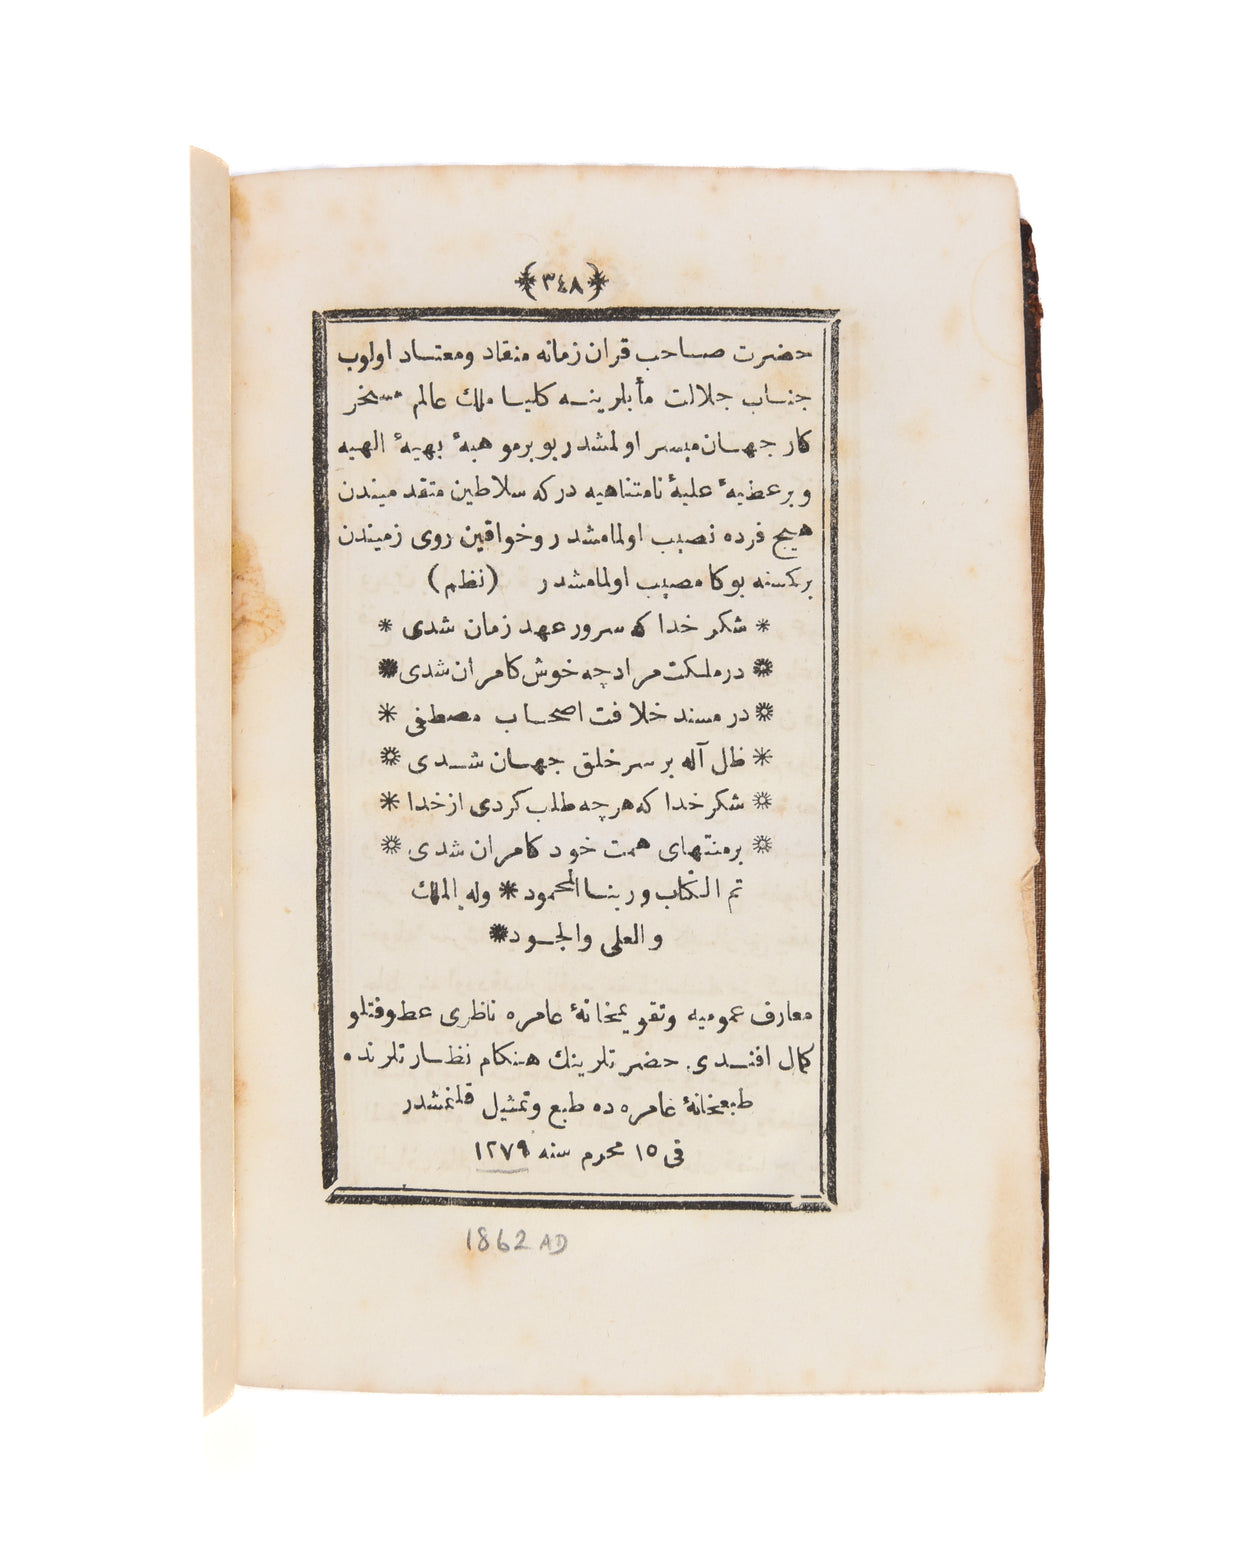 ﴿٣٤٨﴾
حضرت صاحب قران زمانه منقاد ومعتاد اولوب
جناب جلالت مأبلرینه کلیا ملك عالم مسخر
کار جهان میسر اولمشدر بو بر موهبهٔ بهیهٔ الهیه
وبر عطیهٔ علیهٔ نامتناهیه درکه سلاطین متقدمیندن
هیچ فرده نصیب اولمامشدر وخواقین روی زمیندن
برکسنه بوکا مصیب اولمامشدر (نظم)
* شکر خدا که سرور عهد زمان شدی *
* در مملکت مراد چه خوش کامران شدی *
* در مسند خلافت اصحاب مصطفی *
* ظل آله بر سر خلق جهان شدی *
* شکر خدا که هر چه طلب کردی از خدا *
* بر منتهای همت خود کامران شدی *
تم الکتاب وربنا المحمود * وله الملك
والعلی والجود *
معارف عمومیه وتقویمخانهٔ عامره ناظری عطوفتلو
کمال افندی حضرتلرینك هنکام نظارتلرنده
طبعخانهٔ عامره ده طبع وتمثیل قلنمشدر
فی ١٥ محرم سنه ١٢٧٩
1862 AD